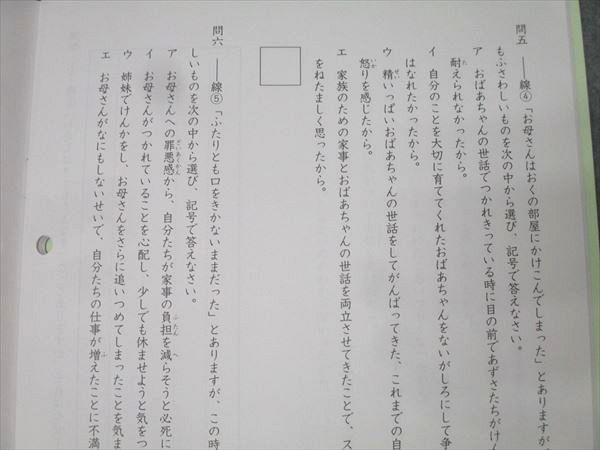 問五 ――線④「お母さんはおくの部屋にかけこんでしまった」とありますが、
もふさわしいものを次の中から選び、記号で答えなさい。
ア おばあちゃんの世話でつかれきっている時に目の前であずさたちがけん
耐えられなかったから。
イ 自分のことを大切に育ててくれたおばあちゃんをないがしろにして争
はなれたかったから。
ウ 精いっぱいおばあちゃんの世話をしてがんばってきた、これまでの自
怒りを感じたから。
エ 家族のための家事とおばあちゃんの世話を両立させてきたことで、ス
をねたましく思ったから。
問六 ――線⑤「ふたりとも口をきかないままだった」とありますが、この時
しいものを次の中から選び、記号で答えなさい。
ア お母さんへの罪悪感から、自分たちが家事の負担を減らそうと必死に
イ お母さんがつかれていることを心配し、少しでも休ませようと気をつ
ウ 姉妹でけんかをし、お母さんをさらに追いつめてしまったことを気ま
エ お母さんがなにもしないせいで、自分たちの仕事が増えたことに不満